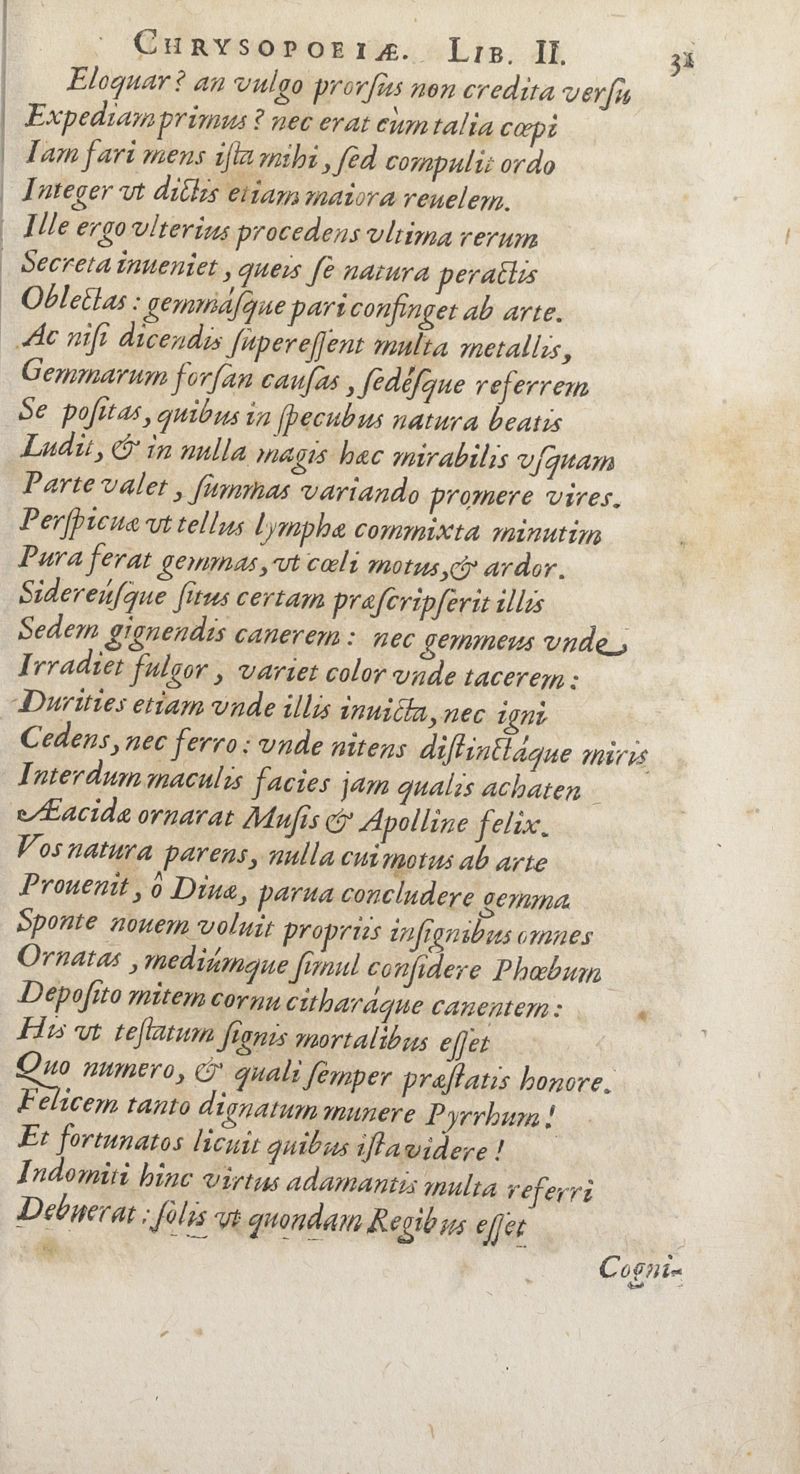 CHRYSOPOEIÆ. LIB. II. 31
Eloquar? an vulgo prorſus non credita verſu
Expediam primus? nec erat cùm talia cœpi
Iam fari mens iſta mihi, ſed compulit ordo
Integer vt dictis etiam maiora reuelem.
Ille ergo vlterius procedens vltima rerum
Secreta inueniet, queis ſe natura peractis
Oblectas: gemmáſque pari confinget ab arte.
Ac niſi dicendis ſupereſſent multa metallis,
Gemmarum forſan cauſas, ſedéſque referrem
Se poſitas, quibus in ſpecubus natura beatis
Ludit, & in nulla magis hæc mirabilis vſquam
Parte valet, ſummas variando promere vires.
Perſpicuæ vt tellus lymphæ commixta minutim
Pura ferat gemmas, vt cœli motus, & ardor.
Sidereúſque ſitus certam præſcripſerit illis
Sedem gignendis canerem: nec gemmeus vnde
Irradiet fulgor, variet color vnde tacerem:
Durities etiam vnde illis inuicta, nec igni
Cedens, nec ferro: vnde nitens diſtinctáque miris
Interdum maculis facies jam qualis achaten
Æacidæ ornarat Muſis & Apolline felix.
Vos natura parens, nulla cui motus ab arte
Prouenit, ô Diuæ, parua concludere gemma
Sponte nouem voluit propriis inſignibus omnes
Ornatas, mediúmque ſimul conſidere Phœbum
Depoſito mitem cornu citharáque canentem:
His vt teſtatum ſignis mortalibus eſſet
Quo numero, & quali ſemper præſtatis honore.
Felicem tanto dignatum munere Pyrrhum!
Et fortunatos licuit quibus iſta videre!
Indomiti hinc virtus adamantis multa referri
Debuerat; ſolis vt quondam Regibus eſſet
Cogni-